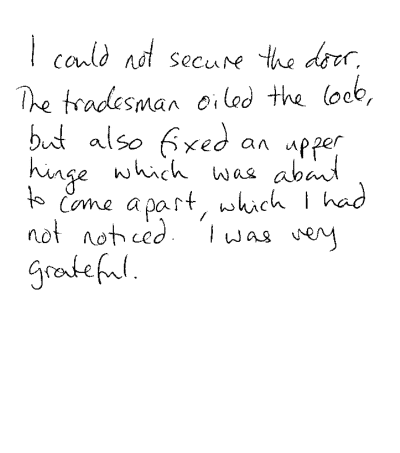 I could not secure the door.
The tradesman oiled the lock,
but also fixed an upper
hinge which was about
to come apart, which I had
not noticed. I was very
grateful.